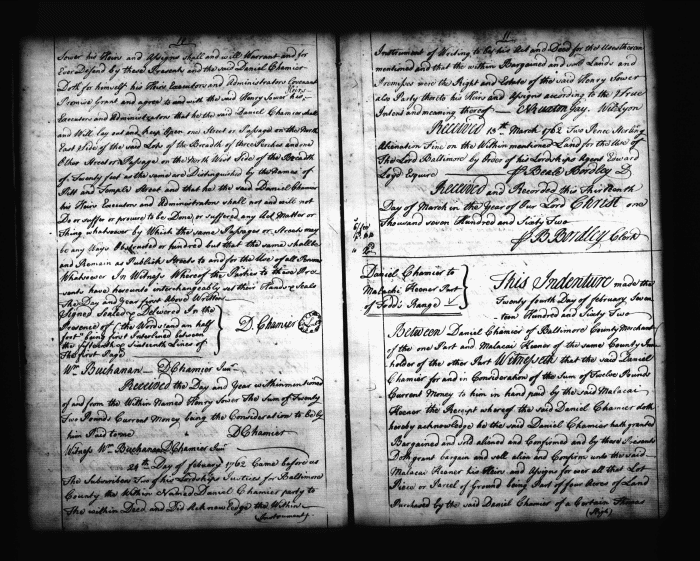 Sower his Heirs and Assigns shall and will Warrant and for
Ever Defend by these Presents and the said Daniel Chamier
Doth for himself his Heirs Executors and Administrators Covenant
Promise Grant and agree to and with the said Henry Sower his Heirs
Executors and Administrators that he the said Daniel Chamier shall
and Will lay out and keep Open one Street or Passage on the North
East Side of the said Lots of the Breadth of three Perches and one
Other Street or Passage on the North West Side of the Breadth
of Twenty feet as the same are Distinguished by the Names of
Pitt and Temple Street and that he the said Daniel Chamier
his Heirs Executors and Administrators shall not and will not
Do or suffer or procure to be Done, or suffered any Act Matter or
Thing whatsoever by Which the same Passages or Streets may
be any Ways Obstructed or hindred but that the same shall be
and Remain as Publick Streets to and for the Use of all Persons
Whatsoever In Witness Whereof the Parties to these Pre-
sents have hereunto interchangeably set their Hands & Seals
the Day and Year first Above Written
Signed Sealed & Delivered In the
Presence of (the Words and an half
foot being first Interlined between
the fifteenth & Sixteenth Lines of
the first Page
D Chamier
Wm. Buchanan - D Chamier Junr.
Received the Day and Year within mentioned
of and from the Within Named Henry Sower The Sum of Twenty
Two Pounds Current Money being the Consideration to be by
him Paid to me
D Chamier
Witness Wm. Buchanan D Chamier Junr.
24th Day of february 1762 Came before us
the Subscribers Two of his Lordships Justices for Baltimore
County the Within Named Daniel Chamier party to
the within Deed and Did Acknowledge the Within
Instrument
11
Instrument of Writing to be his Act and Deed for the Uses therein
mentioned and that the within Bargained and sold Lands and
Premises were the Right and Estate of the said Henry Sower
also Party thereto his Heirs and Assigns according to the True
Intent and meaning thereof
Received 13th March 1762 Two Pence Sterling
Alienation Fine on the Within mentioned Land for the Use of
The Lord Baltimore by Order of his Lordships Agent Edward
Loyd Esquire
Beale Bordley
Received and Recorded this thirteenth
Day of March in the Year of Our Lord Christ one
Thousand seven Hundred and Sixty Two
B Bordley Clerk
Daniel Chamier to
Malachi Keener Part
of Todds Range
This Indenture made the
Twenty fourth Day of february, Seven-
teen Hundred and Sixty Two
Between Daniel Chamier of Baltimore County Merchant
of the one Part and Malacai Keener of the same County
holder of the other Part Witnesseth that the said Daniel
Chamier for and in Consideration of the Sum of Twelve Pounds
Current Money to him in hand paid by the said Malacai
Keener the Receipt whereof the said Daniel Chamier doth
hereby acknowledge he the said Daniel Chamier hath granted
Bargained and sold aliened and Confirmed and by these Presents
Doth grant bargain and sell alien and Confirm unto the said
Malacai Keener his Heirs and Assigns for ever all that Lot
Piece or Parcel of Ground being Part of four Acres of Land
Purchased by the said Daniel Chamier of a Certain Thomas